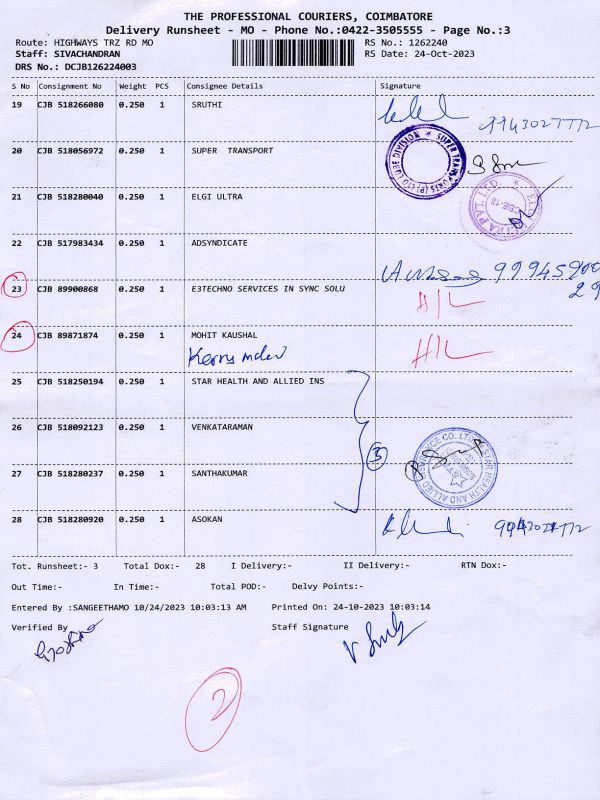 THE PROFESSIONAL COURIERS, COIMBATORE
Delivery Runsheet - MO - Phone No.:0422-3505555 - Page No.:3
Route: HIGHWAYS TRZ RD MO RS No.: 1262240
Staff: SIVACHANDRAN RS Date: 24-Oct-2023
DRS No.: DCJB126224003
S No Consignment No Weight PCS Consignee Details Signature
19 CJB 518266080 0.250 1 SRUTHI
9943027772
20 CJB 518056972 0.250 1 SUPER TRANSPORT
SUPER TRANSPORTS (P) LTD CBE DIVISION
21 CJB 518280040 0.250 1 ELGI ULTRA
22 CJB 517983434 0.250 1 ADSYNDICATE
23 CJB 89900868 0.250 1 E3TECHNO SERVICES IN SYNC SOLU
H/L
24 CJB 89871874 0.250 1 MOHIT KAUSHAL
H/L
25 CJB 518250194 0.250 1 STAR HEALTH AND ALLIED INS
26 CJB 518092123 0.250 1 VENKATARAMAN
3
STAR HEALTH AND ALLIED INSURANCE CO. LTD.
27 CJB 518280237 0.250 1 SANTHAKUMAR
28 CJB 518280920 0.250 1 ASOKAN
Tot. Runsheet:- 3 Total Dox:- 28 I Delivery:- II Delivery:- RTN Dox:-
Out Time:- In Time:- Total POD:- Delvy Points:-
Entered By :SANGEETHAMO 10/24/2023 10:03:13 AM Printed On: 24-10-2023 10:03:14
Verified By Staff Signature
2